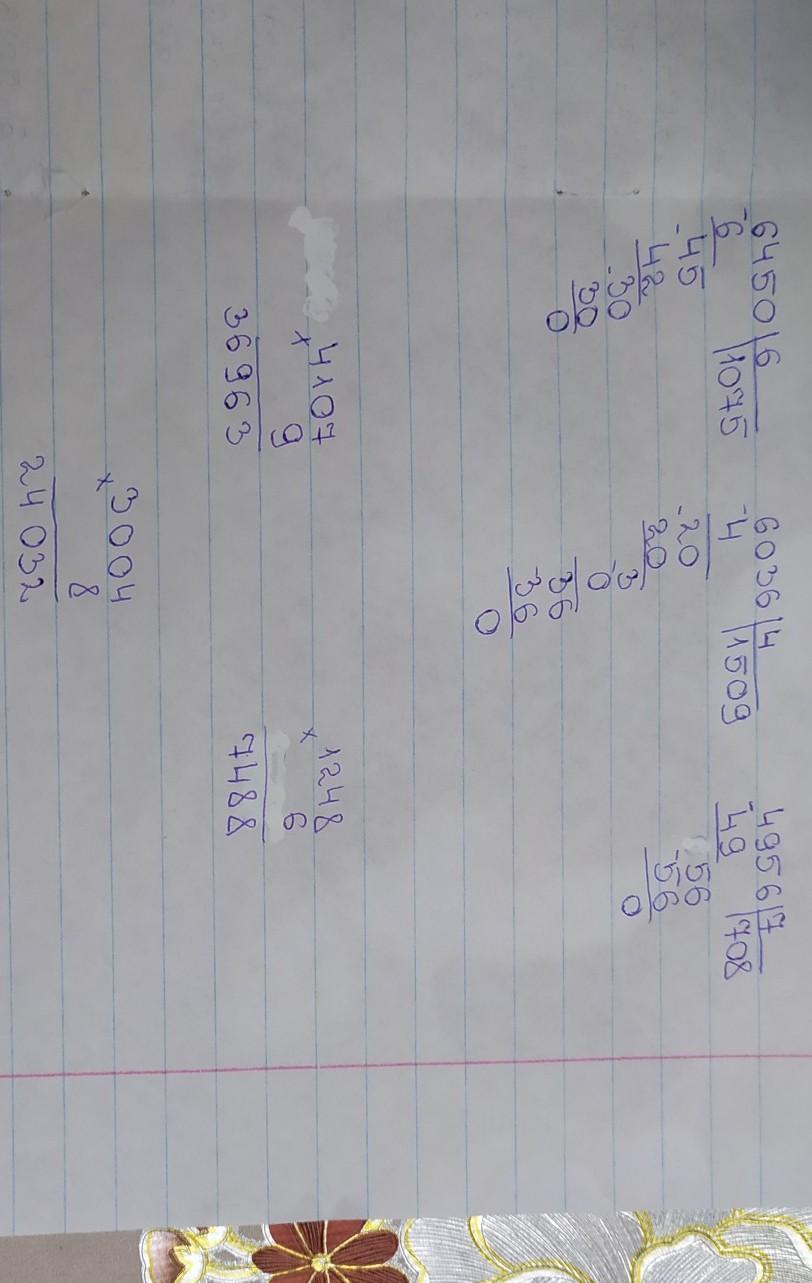 6450 | 6
-6 | 1075
-45
42
-30
30
0
6036 | 4
-4 | 1509
-20
20
-3
0
-36
36
0
4956 | 7
-49 | 708
-56
56
0
4107
×
9
36963
1248
×
6
7488
3004
×
8
24032